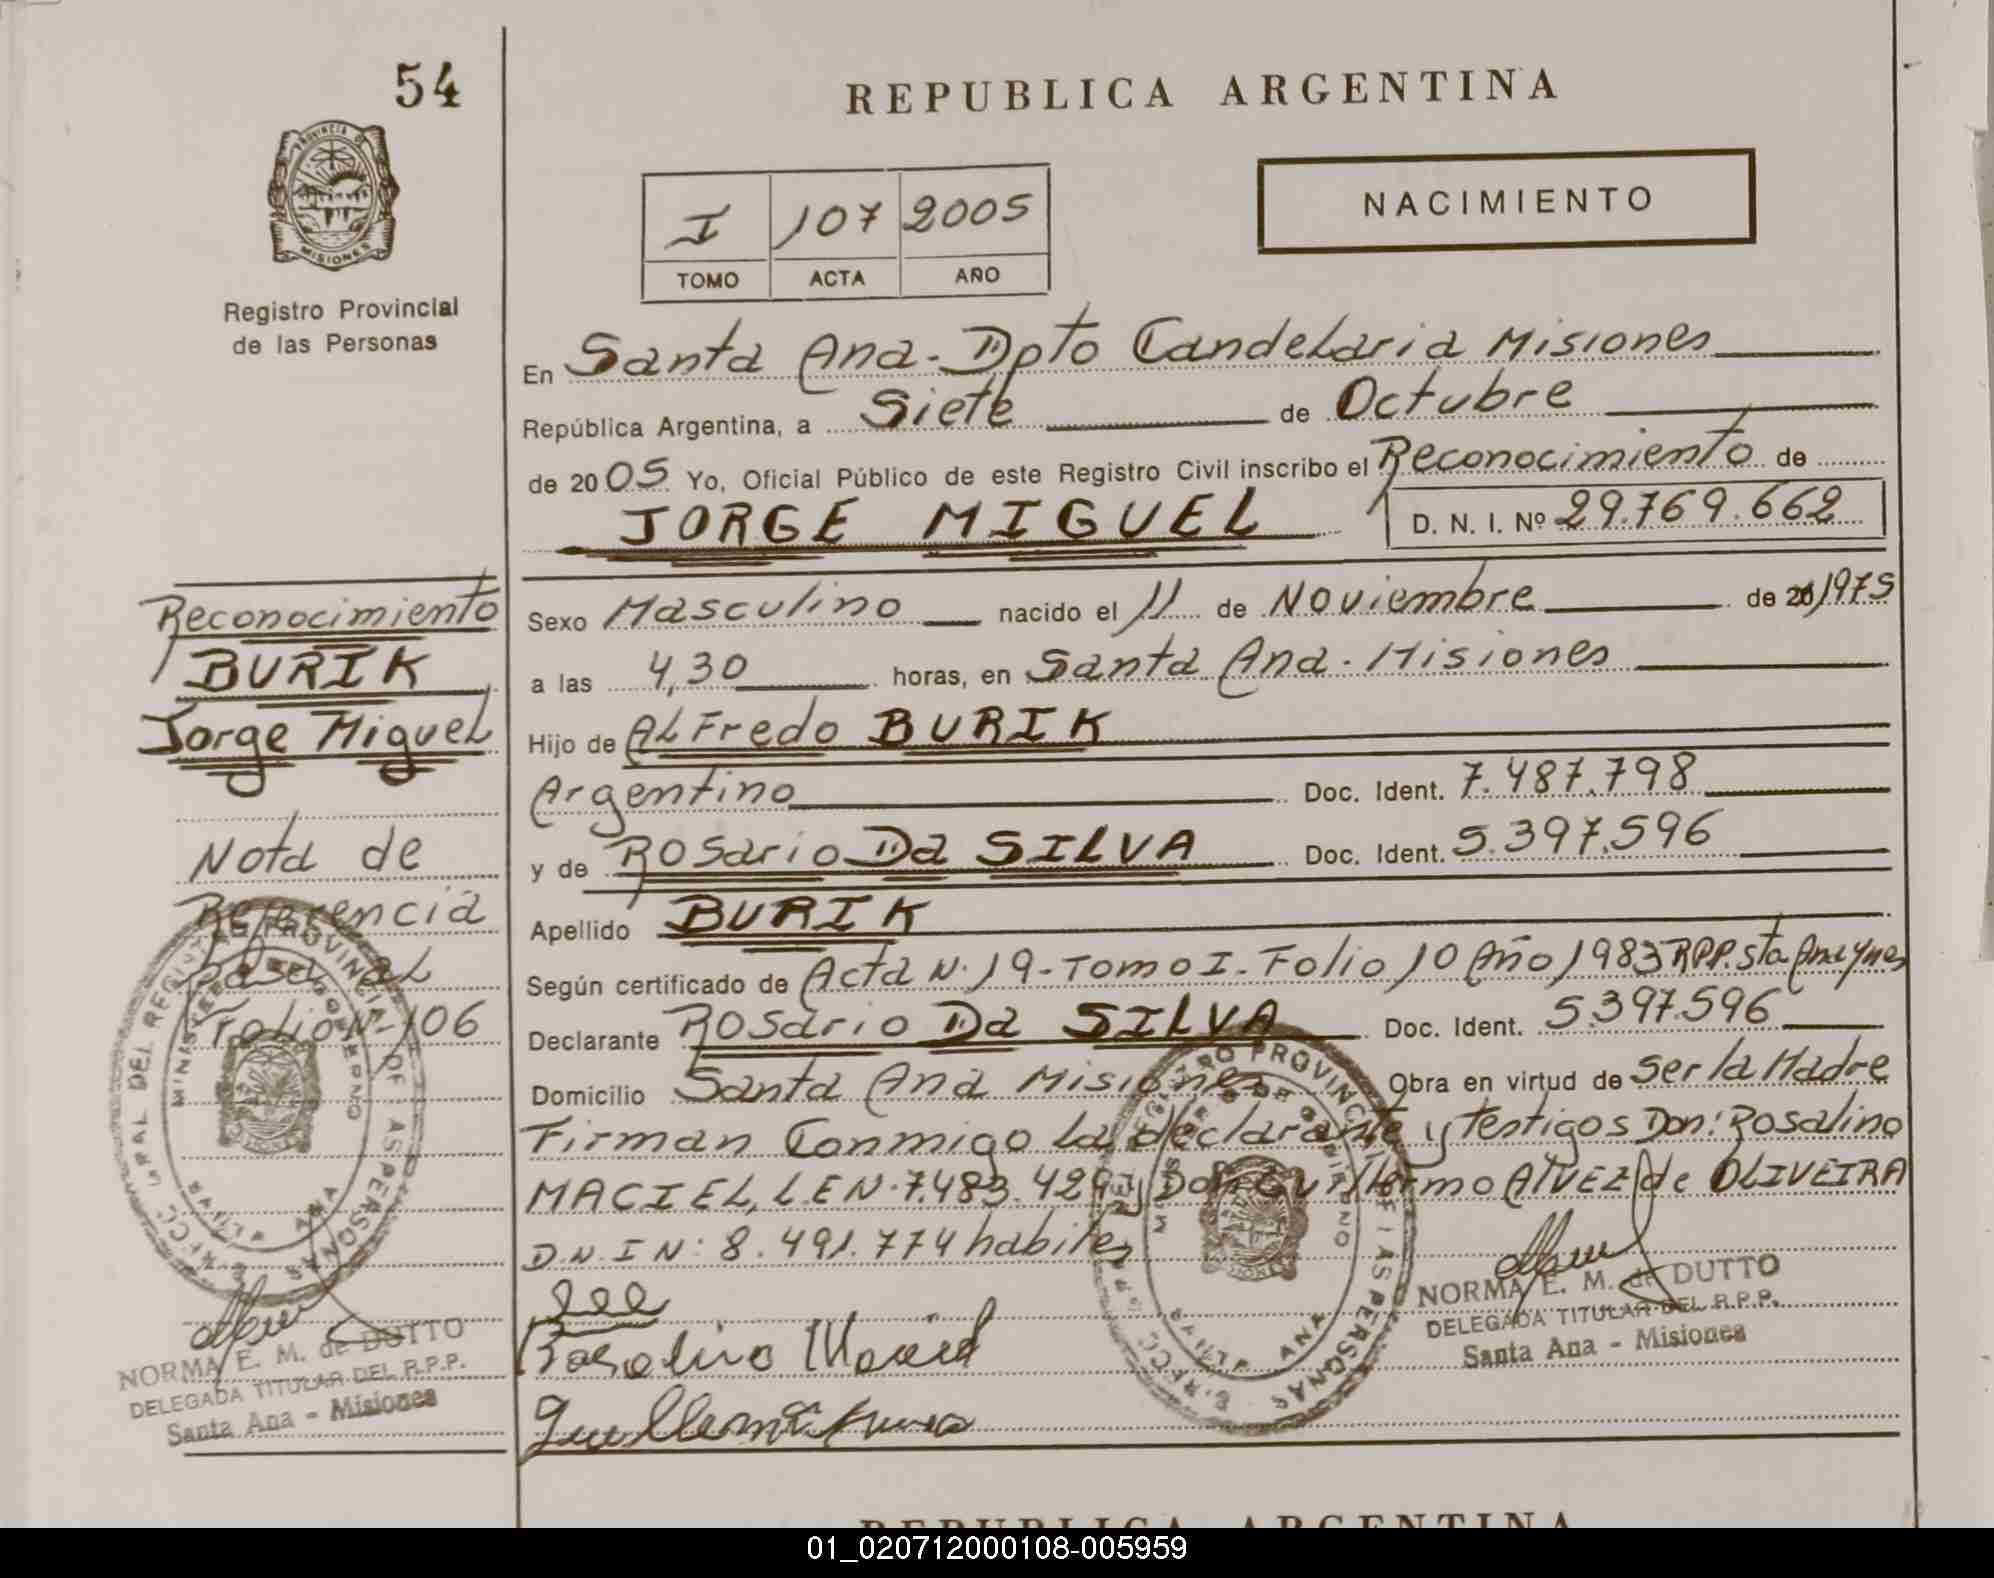 54
PROVINCIA DE
MISIONES
Registro Provincial
de las Personas
REPUBLICA ARGENTINA
I 107 2005
TOMO ACTA AÑO
NACIMIENTO
En Santa Ana - Dpto Candelaria Misiones
República Argentina, a Siete de Octubre
de 2005 Yo, Oficial Público de este Registro Civil inscribo el Reconocimiento de
JORGE MIGUEL D. N. I. Nº 29.769.662
Sexo Masculino nacido el 11 de Noviembre de 20 1975
a las 4,30 horas, en Santa Ana - Misiones
Hijo de Alfredo BURIK
Argentino Doc. Ident. 7.487.798
y de Rosario Da SILVA Doc. Ident. 5.397.596
Apellido BURIK
Según certificado de Acta N. 19 - Tomo I - Folio 10 Año 1983 R.P.P. Sta Ana
Declarante Rosario Da SILVA Doc. Ident. 5.397.596
Domicilio Santa Ana Misiones Obra en virtud de ser la Madre
Firman Conmigo La declarante y Testigos Don: Rosalino
MACIEL, L.E N. 7.483.429 y Don Guillermo Alvez de OLIVEIRA
D.N.I N: 8.491.774 habiles
Rosalino Maciel
NORMA E. M. de DUTTO
DELEGADA TITULAR DEL R.P.P.
Santa Ana - Misiones
Reconocimiento
BURIK
Jorge Miguel
Nota de
Referencia
pase al
Folio N- 106
NORMA E. M. de DUTTO
DELEGADA TITULAR DEL R.P.P.
Santa Ana - Misiones
REPUBLICA ARGENTINA
01_020712000108-005959